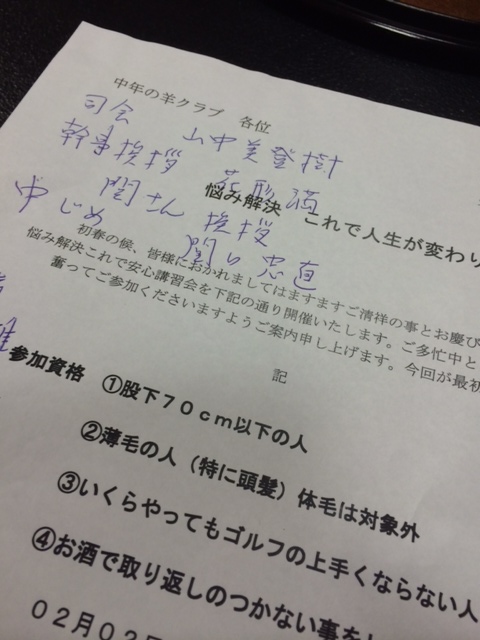 中年の羊クラブ 各位
司会 山中美登樹
幹事挨拶 花形満
悩み解決 これで人生が変わり
関さん 挨拶
中じめ 関口忠直
初春の候、皆様におかれましてはますますご清祥の事とお慶び
悩み解決これで安心講習会を下記の通り開催いたします。ご多忙中と
奮ってご参加くださいますようご案内申し上げます。今回が最初
記
参加資格 ①股下70cm以下の人
②薄毛の人(特に頭髪)体毛は対象外
③いくらやってもゴルフの上手くならない人
④お酒で取り返しのつかない事を
02月02日